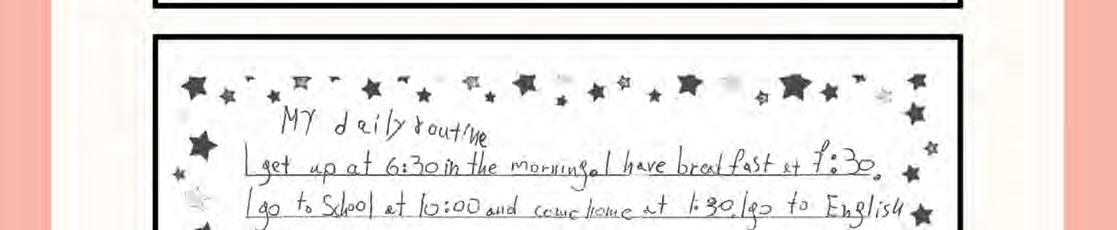 My daily routine
I get up at 6:30 in the morning. I have breakfast at 7:30.
I go to School at 10:00 and come home at 1:30. I go to English